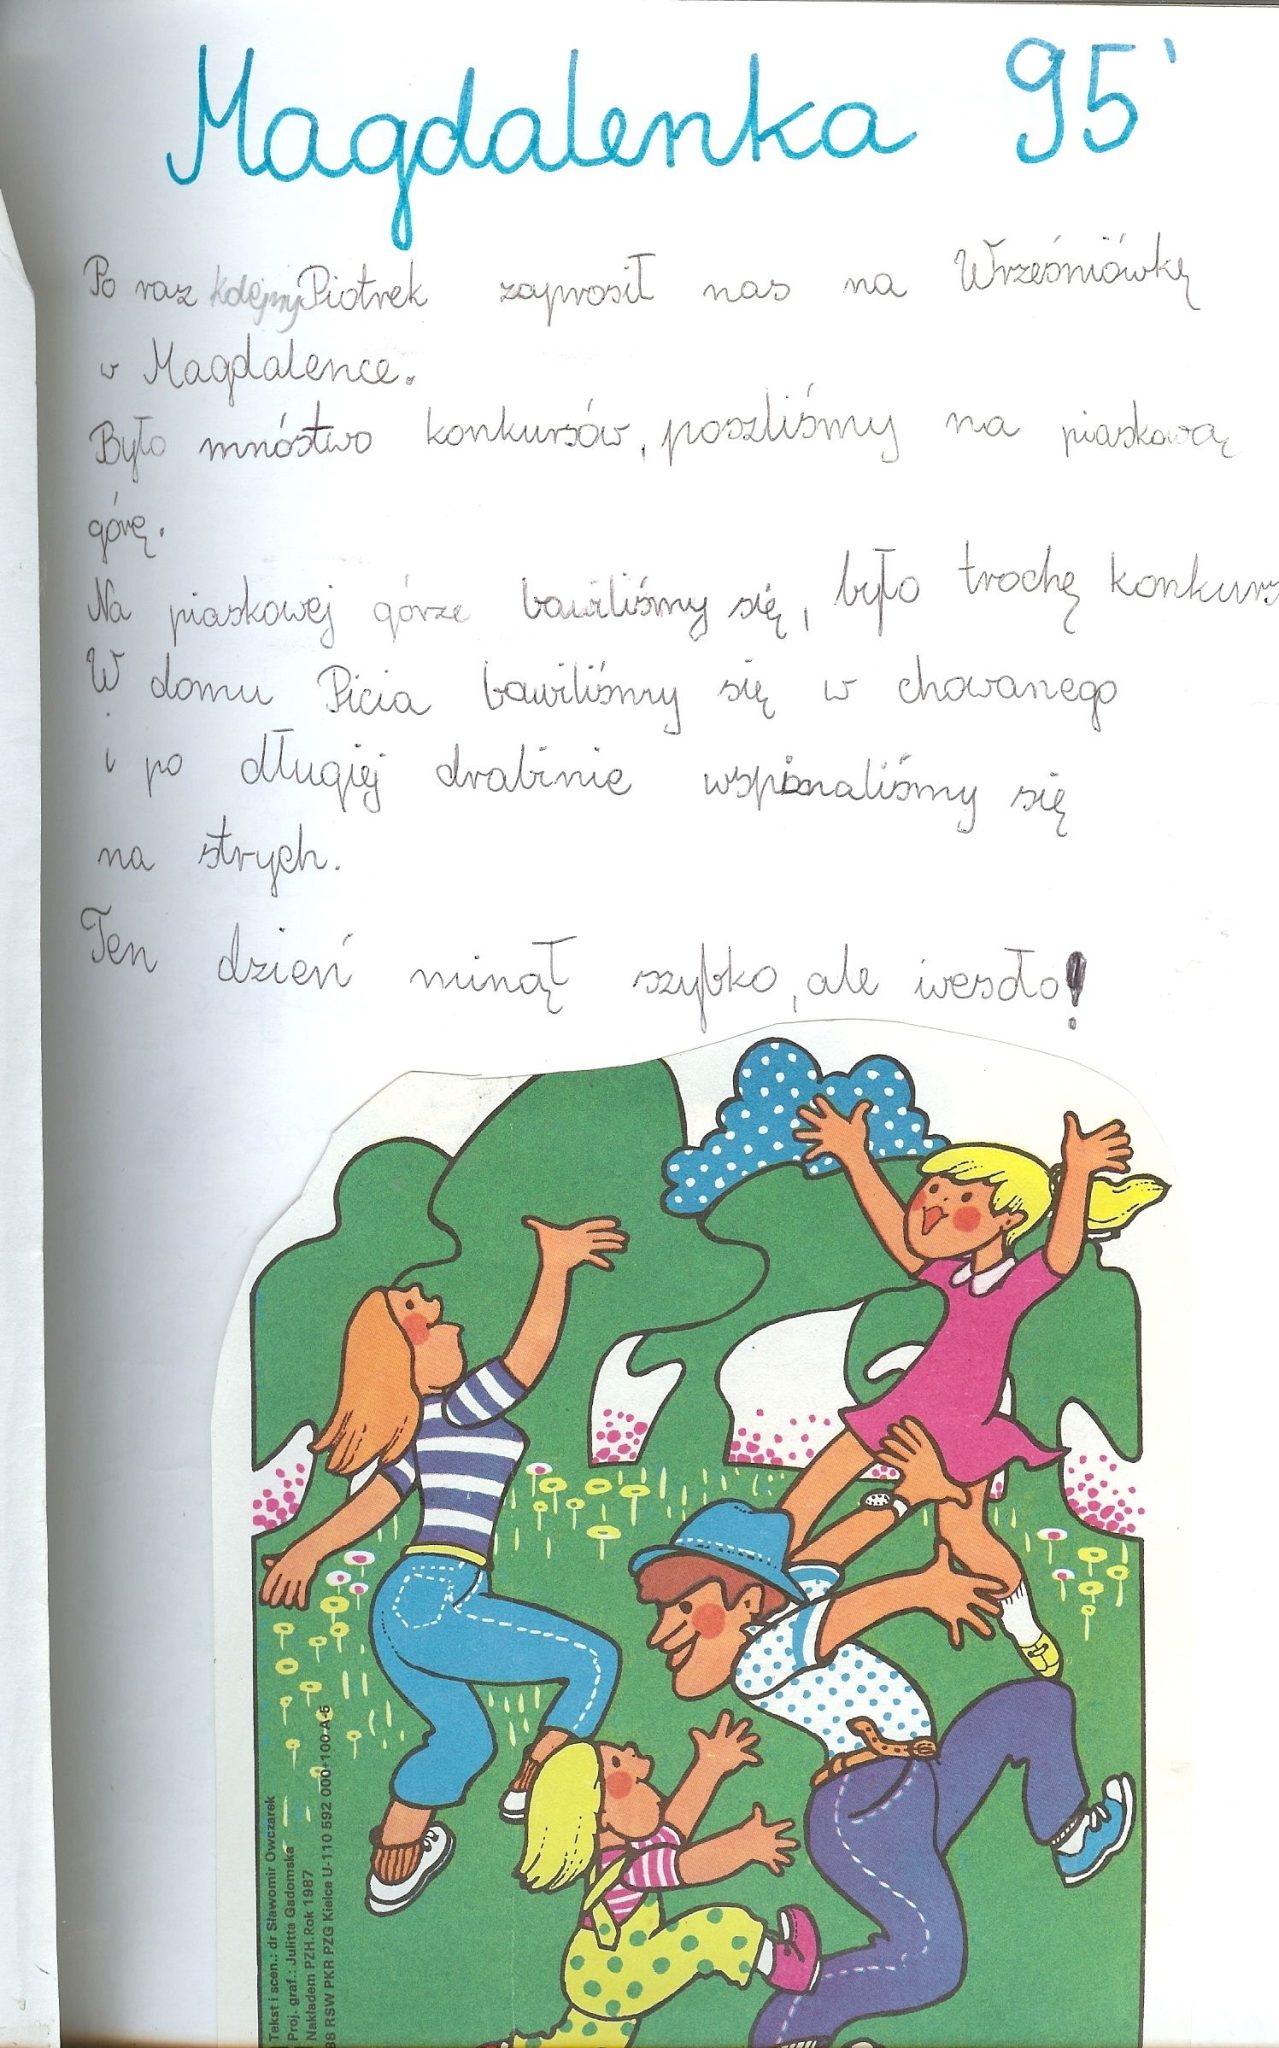 Magdalenka 95'
Po raz kolejny Piotrek zaprosił nas na Wrześniówkę
w Magdalence.
Było mnóstwo konkursów, poszliśmy na piaskową
górę.
Na piaskowej górze bawiliśmy się, było trochę konkurs
W domu Picia bawiliśmy się w chowanego
i po długiej drabinie wspinaliśmy się
na strych.
Ten dzień minął szybko, ale wesoło!
Tekst i scen.: dr Sławomir Owczarek
Proj. graf.: Julitta Gadomska
Nakładem PZH.Rok 1987
88 RSW PKR PZG Kielce U-110 592 000+100 A-5